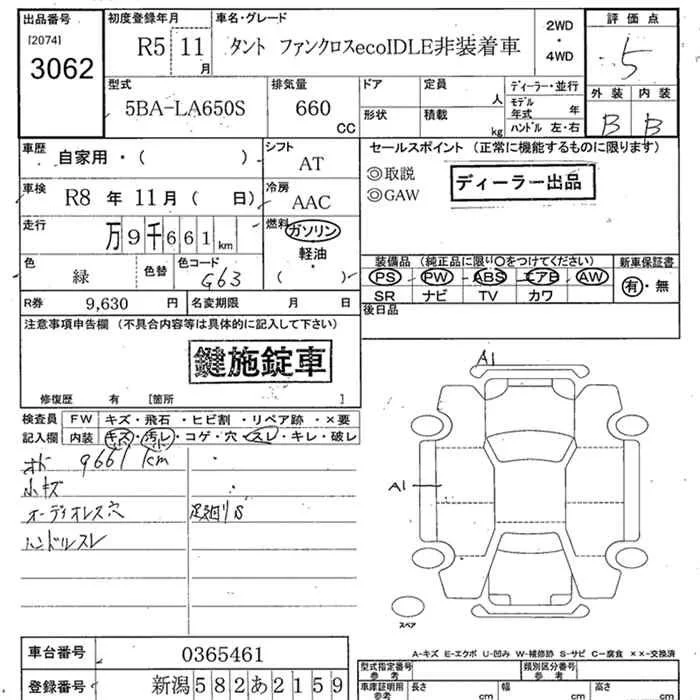 出品番号
[2074]
3062
初度登録年月
R5 11 月
車名・グレード
タント ファンクロスecoIDLE非装着車
2WD
・
4WD
評価点
5
外装 内装
B B
型式
5BA-LA650S
排気量
660 CC
ドア
形状
定員 人
積載 kg
ディーラー・並行
モデル年式 年
ハンドル 左・右
車歴
自家用・( )
シフト
AT
車検
R8 年 11 月 ( 日)
冷房
AAC
走行
万 9 千 6 6 1 km
燃料
ガソリン
軽油
・
( )
色
緑
色替
色コード
G63
R券 9,630 円
名変期限 月 日
セールスポイント (正常に機能するものに限ります)
◎取説
◎GAW
ディーラー出品
装備品 (純正品に限り〇をつけてください)
PS PW ABS エアB AW
SR ナビ TV カワ
新車保証書
有・無
後日品
注意事項申告欄 (不具合内容等は具体的に記入して下さい)
鍵施錠車
修復歴 有 [箇所 ]
検査員
記入欄
FW キズ・飛石・ヒビ割・リペア跡・×要
内装 キズ・汚レ・コゲ・穴・スレ・キレ・破レ
9661km
小キズ
オーディオレス穴
足廻りS
ハンドルスレ
A1
A1
スペア
A-キズ E-エクボ U-凹み W-補修跡 S-サビ C-腐食 ××-交換済
車台番号 0365461
登録番号 新潟582あ2159
型式指定番号
参考
類別区分番号
参考
車庫証明用
参考
長さ cm
幅 cm
高さ cm